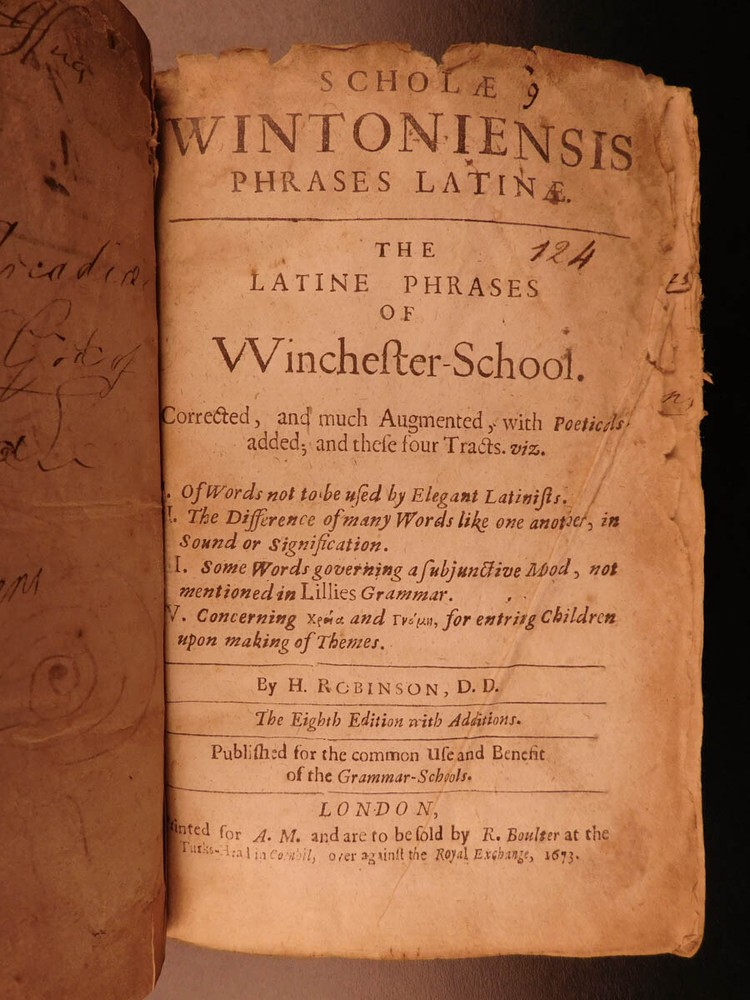 SCHOLÆ 9
WINTONIENSIS
PHRASES LATINÆ.
THE 124
LATINE PHRASES
OF
VVincheſter-School.
Corrected, and much Augmented, with Poeticals
added; and theſe four Tracts. viz.
I. Of Words not to be uſed by Elegant Latiniſts.
II. The Difference of many Words like one another, in
Sound or Signification.
III. Some Words governing a ſubjunctive Mood, not
mentioned in Lillies Grammar.
IV. Concerning Χρεία and Γνώμη, for entring Children
upon making of Themes.
By H. ROBINSON, D. D.
The Eighth Edition with Additions.
Publiſhed for the common Uſe and Benefit
of the Grammar-Schools.
LONDON,
Printed for A. M. and are to be ſold by R. Boulter at the
Turks-Head in Cornhil, over againſt the Royal Exchange, 1673.